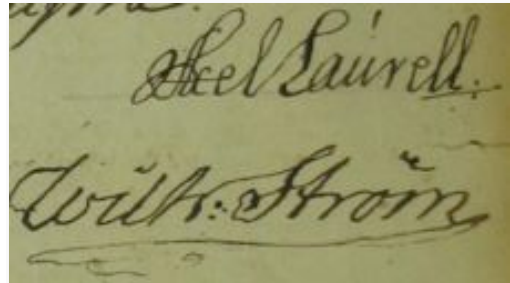 Axel Laurell.
Wilh: Ström